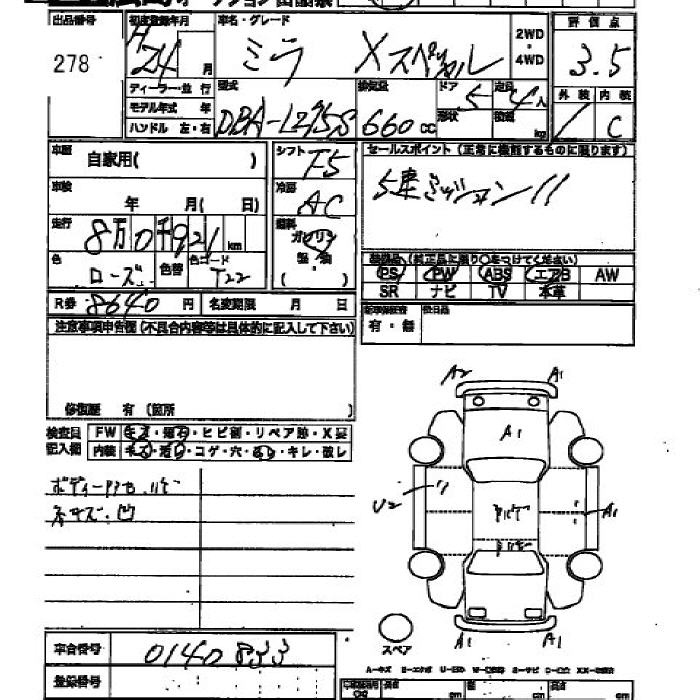 出品番号 初度登録年月 車名・グレード 2WD・4WD 評価点
278 H24 月 ミラ Xスペシャル 3.5
ディーラー・並行 型式 排気量 ドア 5 定員 4人 外装 内装
モデル年式 年 DBA-L275S 660cc 形状 積載 kg C
ハンドル 左・右
車歴 自家用( ) シフト F5 セールスポイント(正常に機能するものに限ります)
車検 年 月( 日) 冷房 AC 5速ミッション!!
走行 8万0千921km 燃料 ガソリン 軽・油 ( )
色 ローズ 色替 色コード T22
装備品(純正品に限り○をつけてください)
PS PW ABS エアB AW
SR ナビ TV 本革
R券 8640円 名変期限 月 日
有・無 後日品
注意事項申告欄(不具合内容等は具体的に記入して下さい)
修復歴 有(箇所 )
検査員 FW キズ・飛石・ヒビ割・リペア跡・X要
記入欄 内装 キズ・汚れ・コゲ・穴・ キレ・破レ
A2 A1
A1
U2 A1
スペア
A1 A1
車台番号 0140833
登録番号